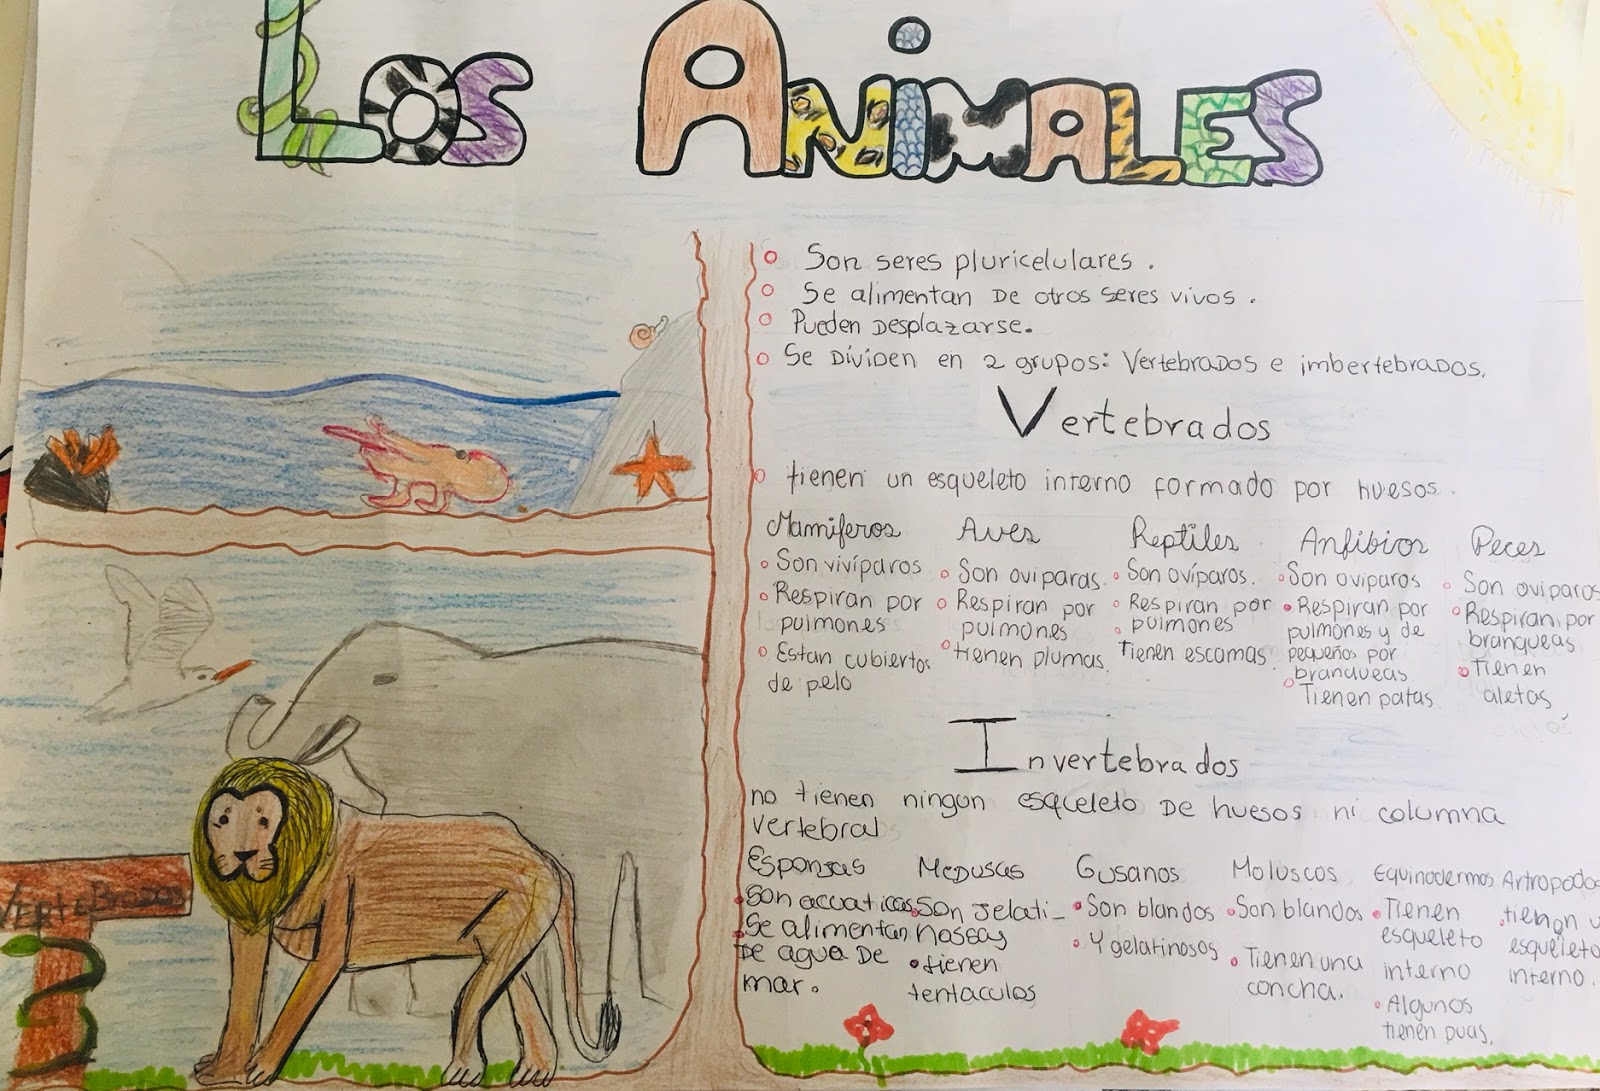 Los Animales
Son seres pluricelulares.
Se alimentan de otros seres vivos.
Pueden desplazarse.
Se dividen en 2 grupos: Vertebrados e imbertebrados.
Vertebrados
tienen un esqueleto interno formado por huesos.
Mamiferos
Son vivíparos
Respiran por
pulmones
Estan cubiertos
de pelo
Aves
Son oviparas.
Respiran por
pulmones
tienen plumas.
Reptiles
Son ovíparos.
Respiran por
pulmones
Tienen escamas.
Anfibios
Son oviparos
Respiran por
pulmones y de
pequeños por
branqueas.
Tienen patas
Peces
Son oviparos
Respiran por
branqueas
Tienen
aletas
Invertebrados
no tienen ningun esqueleto de huesos ni columna
vertebral
Esponjas
Son acuaticas
Se alimentan
de agua de
mar.
Medusas
Son jelati-
nossas
tienen
tentaculos
Gusanos
Son blandos
Y gelatinosos
Moluscos
Son blandos
Tienen una
concha.
Equinodermos
Tienen
esqueleto
interno
Algunos
tienen puas.
Artropodos
tienen u
esqueleto
interno.
Vertebrados